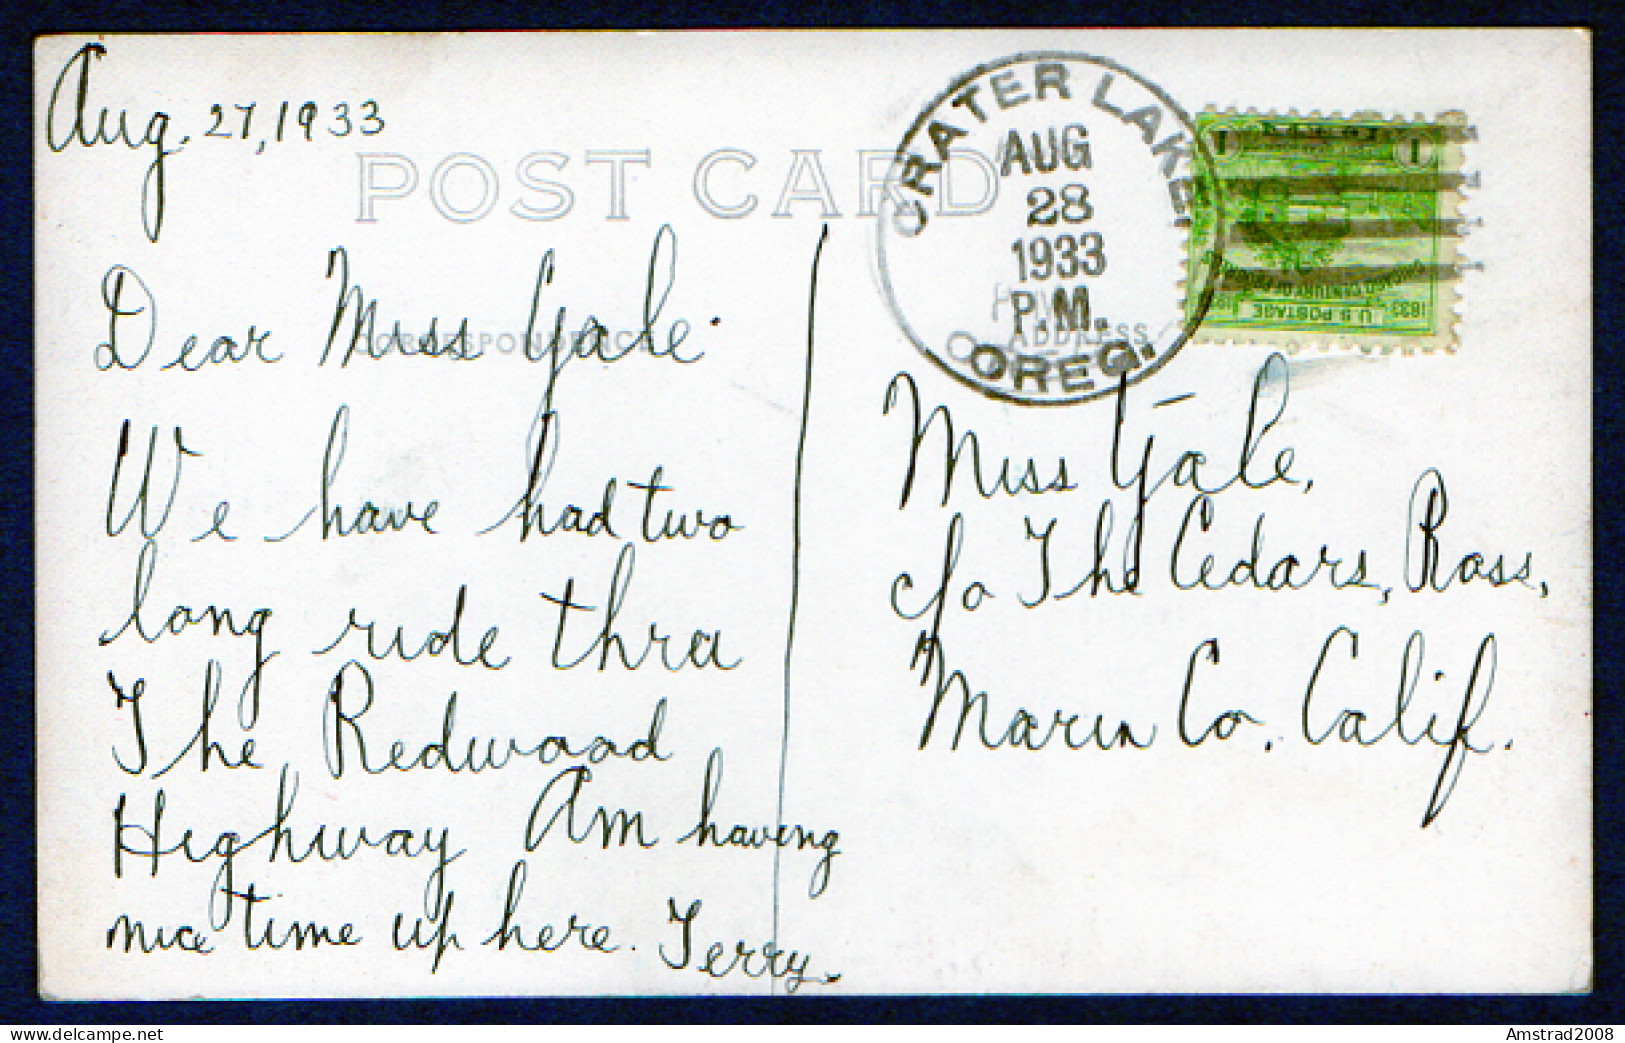 Aug. 27, 1933
POST CARD
CRATER LAKE
AUG
28
1933
P.M.
OREG.
1 1
CHICAGO CENTURY OF
1833 U.S. POSTAGE
CORRESPONDENCE
ADDRESS
Dear Miss Yale.
We have had two
long ride thru
The Redwood
Highway Am having
nice time up here. Terry.
Miss Yale,
c/o The Cedars, Ross,
Marin Co. Calif.
www.delcampe.net
Amstrad2008